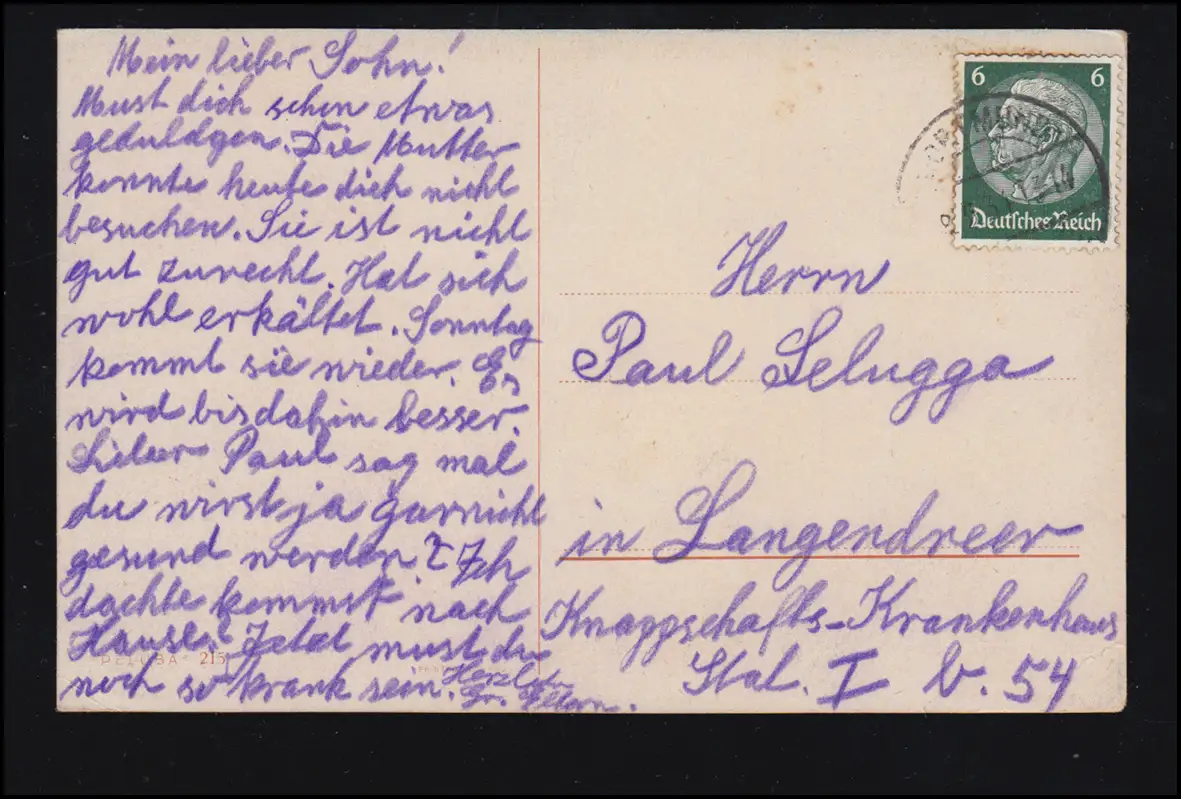 Mein lieber Sohn!
Must dich schon etwas
geduldgen. Die Mutter
konnte heute dich nicht
besuchen. Sie ist nicht
gut zurecht. Hat sich
wohl erkältet. Sonntag
kommt sie wieder. Es
wird bis dahin besser.
Lieber Paul sag mal
du wirst ja garnicht
gesund werden? Ich
dachte kommst nach
Hause? Jetzt must du
noch so krank sein. Herzlich
Gr. Eltern.
215
6 6
Deutsches Reich
Herrn
Paul Selugga
in Langendreer
Knappschafts-Krankenhaus
Stat. I b. 54